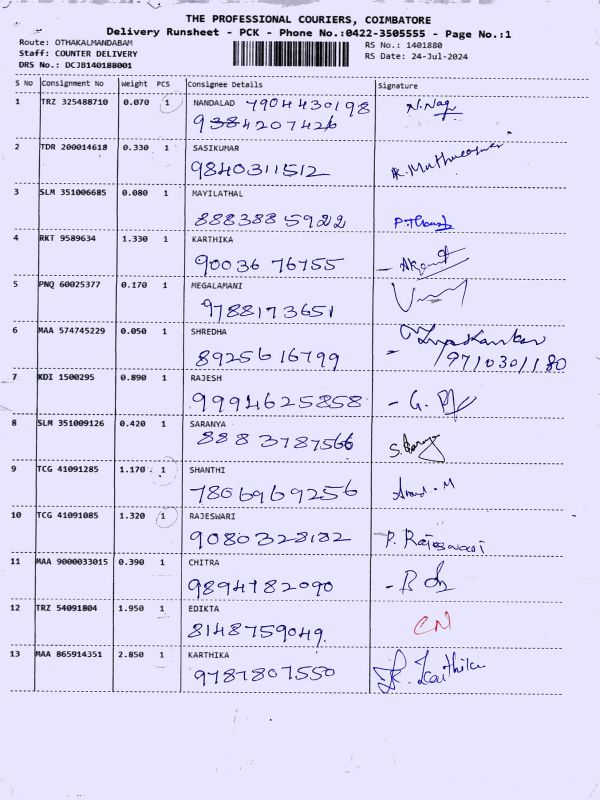 THE PROFESSIONAL COURIERS, COIMBATORE
Delivery Runsheet - PCK - Phone No.:0422-3505555 - Page No.:1
Route: OTHAKALMANDABAM RS No.: 1401880
Staff: COUNTER DELIVERY RS Date: 24-Jul-2024
DRS No.: DCJB140188001
S No Consignment No Weight PCS Consignee Details Signature
1 TRZ 325488710 0.070 1 NANDALAD 7904430198 N.Nag
9384207426
2 TDR 200014618 0.330 1 SASIKUMAR
9840311512
3 SLM 351006685 0.080 1 MAYILATHAL
8883885922
4 RKT 9589634 1.330 1 KARTHIKA
90036 76755
5 PNQ 60025377 0.170 1 MEGALAMANI
9788173651
6 MAA 574745229 0.050 1 SHREDHA
8925616799 /9710301180
7 KDI 1500295 0.890 1 RAJESH
9994625858 - G.
8 SLM 351009126 0.420 1 SARANYA
8883787566 S.
9 TCG 41091285 1.170 1 SHANTHI
7806969256 - M
10 TCG 41091085 1.320 1 RAJESWARI
9080328182 P. Rajeswari
11 MAA 9000033015 0.390 1 CHITRA
9894782090 - B
12 TRZ 54091804 1.950 1 EDIKTA CN
8148759049.
13 MAA 865914351 2.850 1 KARTHIKA
9787807550 K. Karthika